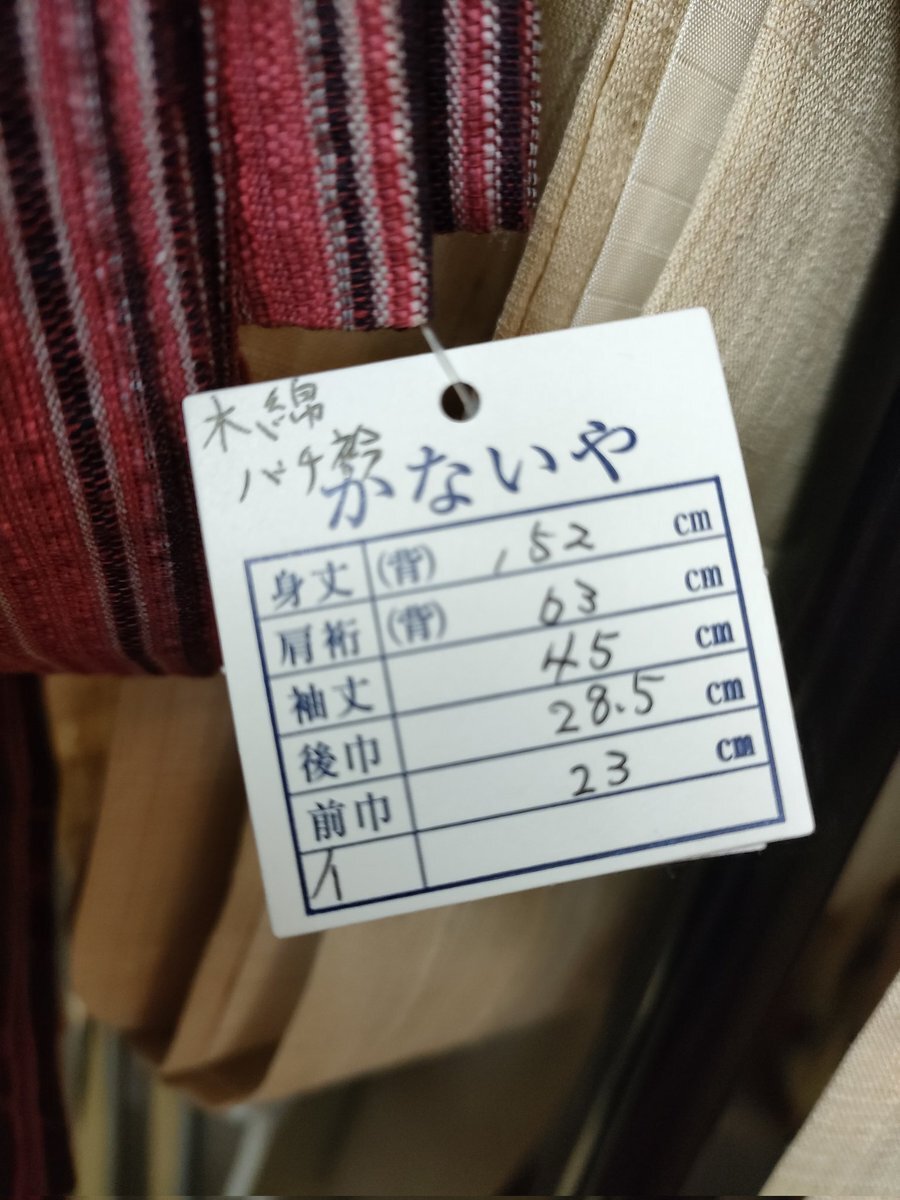 木綿
バチ衿
かないや
身丈 (背) 152 cm
肩裄 (背) 63 cm
袖丈 45 cm
後巾 28.5 cm
前巾 23 cm
イ